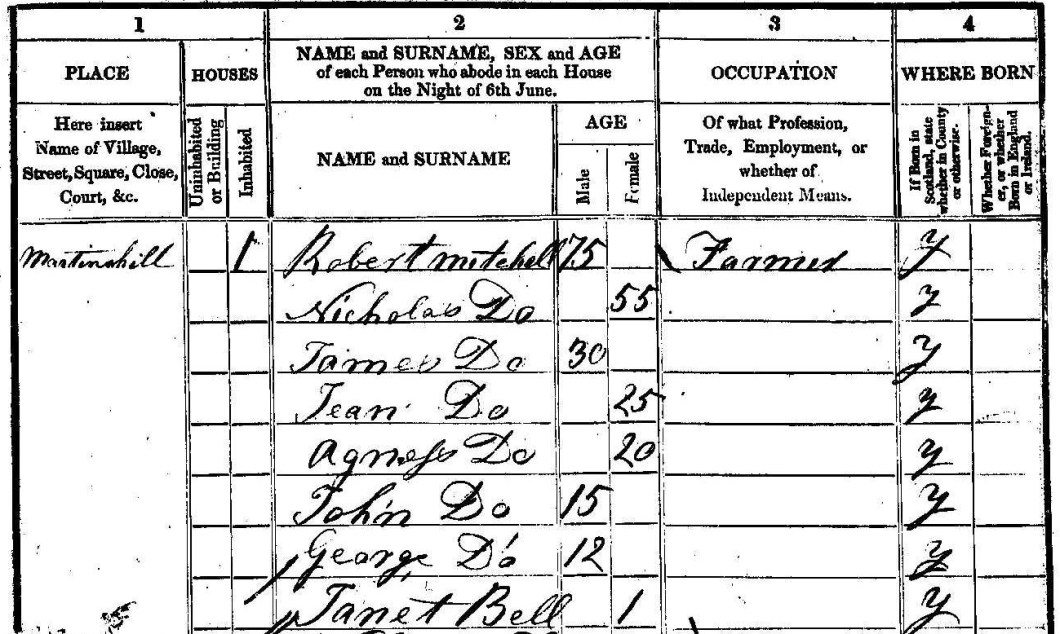 1 2 3 4
PLACE HOUSES NAME and SURNAME, SEX and AGE of each Person who abode in each House on the Night of 6th June. OCCUPATION WHERE BORN
Here insert Name of Village, Street, Square, Close, Court, &c. Uninhabited or Building Inhabited NAME and SURNAME AGE Male Female Of what Profession, Trade, Employment, or whether of Independent Means. If Born in Scotland, state whether in County or otherwise. Whether Foreigner, or whether Born in England or Ireland.
Martinshill 1 Robert mitchell 75 Farmer y
Nicholas Do 55 y
James Do 30 y
Jean Do 25 y
Agness Do 20 y
John Do 15 y
George Do 12 y
Janet Bell 1 y